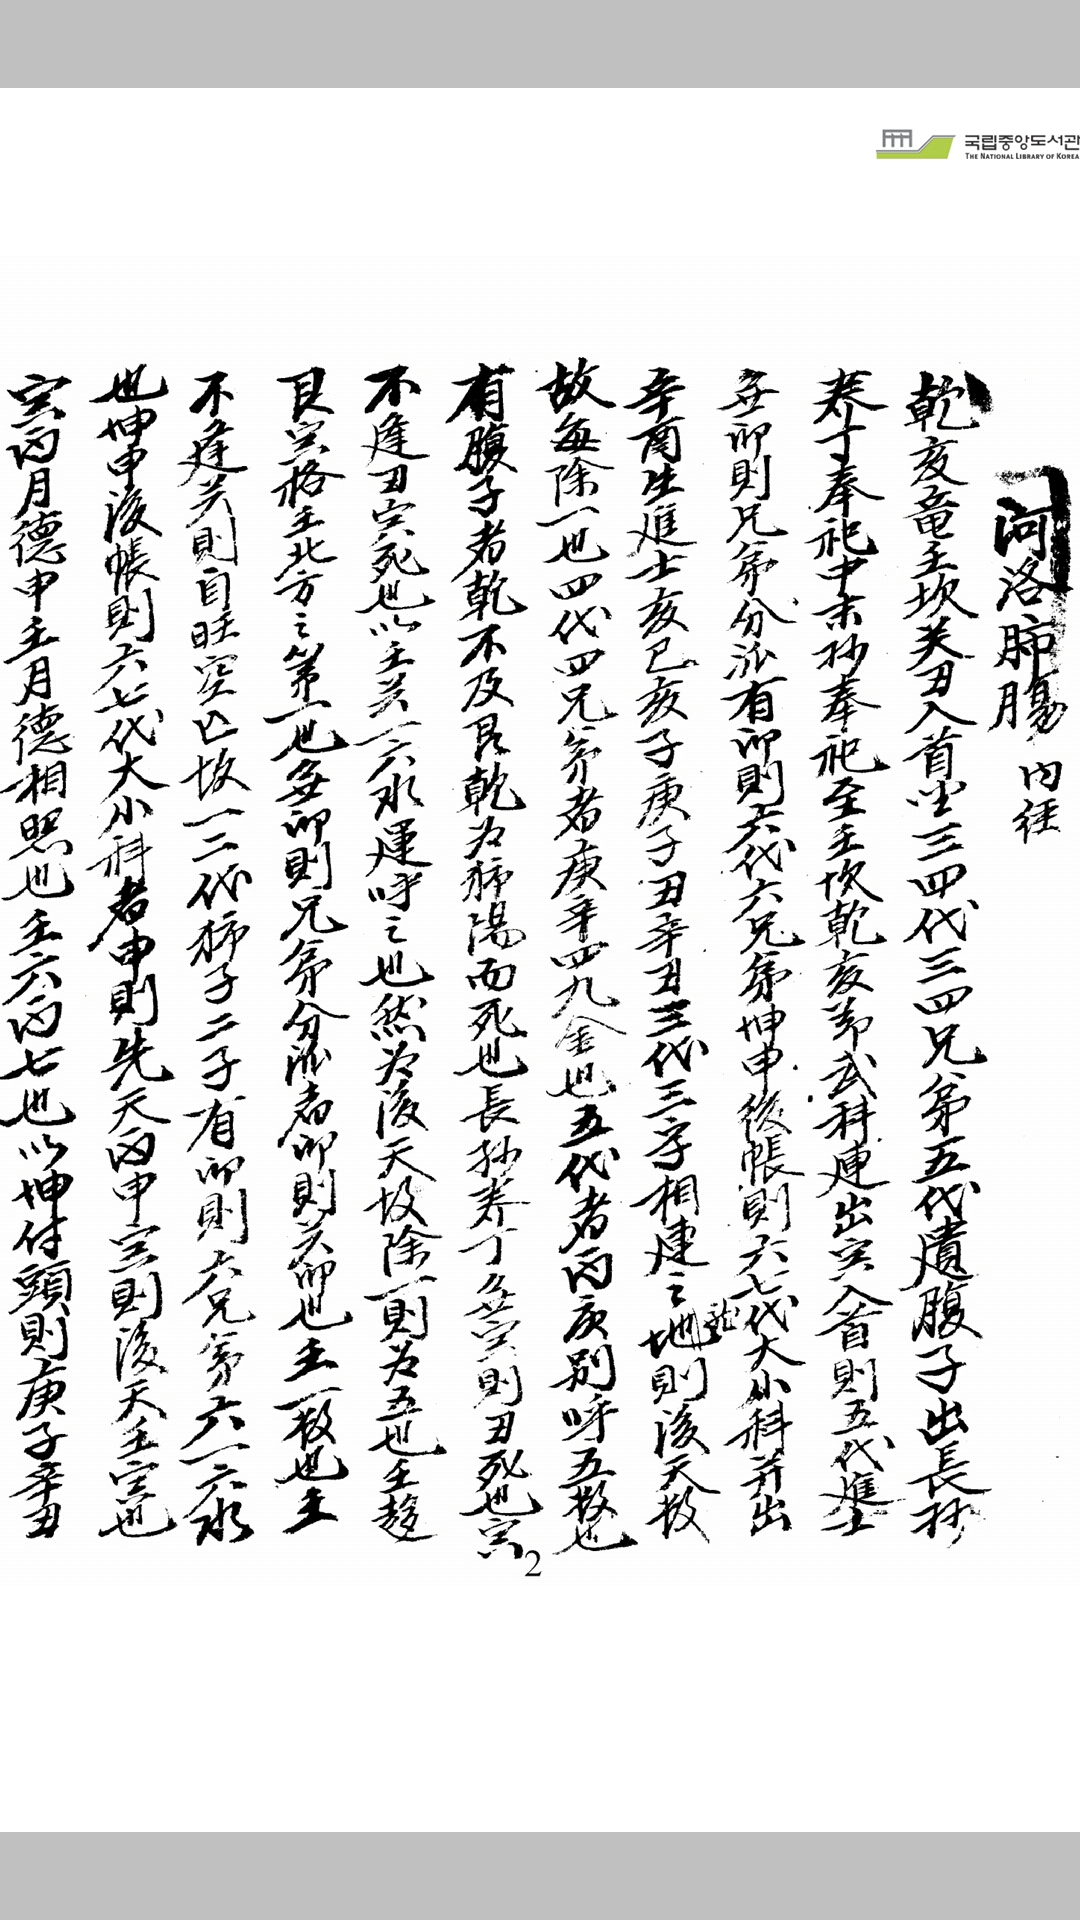 국립중앙도서관
THE NATIONAL LIBRARY OF KOREA
河洛肺腸 內徑
乾亥竜壬坎癸丑入首坐三四代三四兄弟五代遺腹子出長抄
養丁奉祀中末抄奉祀至壬坎乾亥節武科連出穴入首則五代進士
無卯則兄弟分派有卯則六代六兄弟坤申後帳則六七代大小科並出
辛酉生進士亥己亥子庚子丑辛丑三代三字相連之地則後天故
故每除一也四代四兄弟者庚辛四九金也五代者丙庚別呼五故也
有腹子者乾不及艮乾为肺陽而死也長抄養丁無寅則丑死也寅
不逢丑寅死也以壬癸一六水運呼之也然为後天故除一則为五也壬趍
艮寅格壬北方之第一也無卯則兄弟分派者卯則癸卯也壬一故也壬
不逢癸則自旺空亡故一二代肺子二子有卯則六兄弟六一六水
也坤申後帳則六七代大小科者申則先天丙申寅則後天壬寅也
寅丙月德申壬月德相照也壬六丙七也以坤付頭則庚子辛丑
2